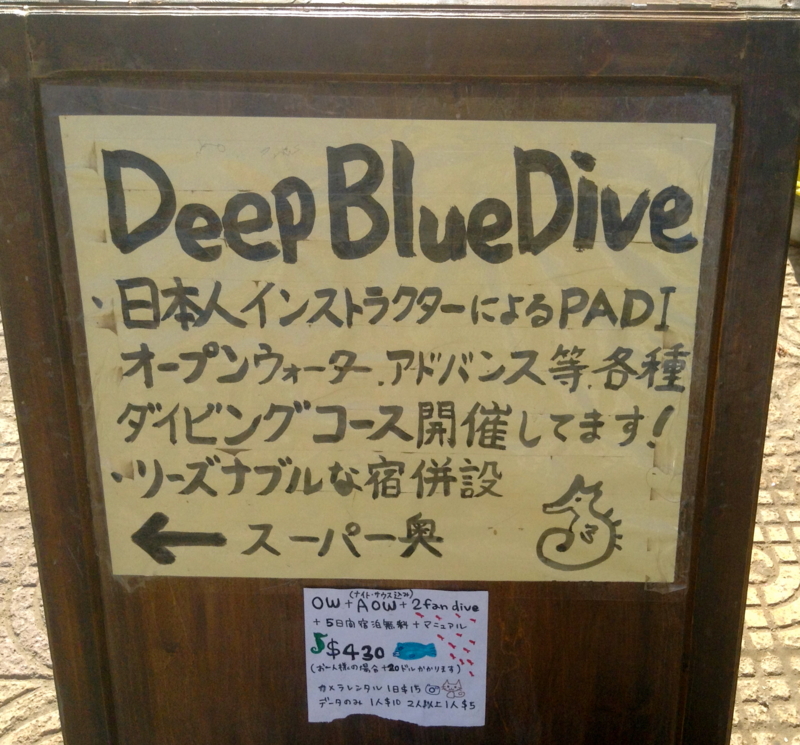 Deep Blue Dive
・日本人インストラクターによるPADI
オープンウォーター、アドバンス等、各種
ダイビングコース開催してます!
・リーズナブルな宿併設
← スーパー奥
(ナイト・サウス込み)
OW + AOW + 2fan dive
+ 5日間宿泊無料 + マニュアル
$430
(お一人様の場合+20ドルかかります)
カメラレンタル 1日$15
データのみ 1人$10 2人以上1人$5